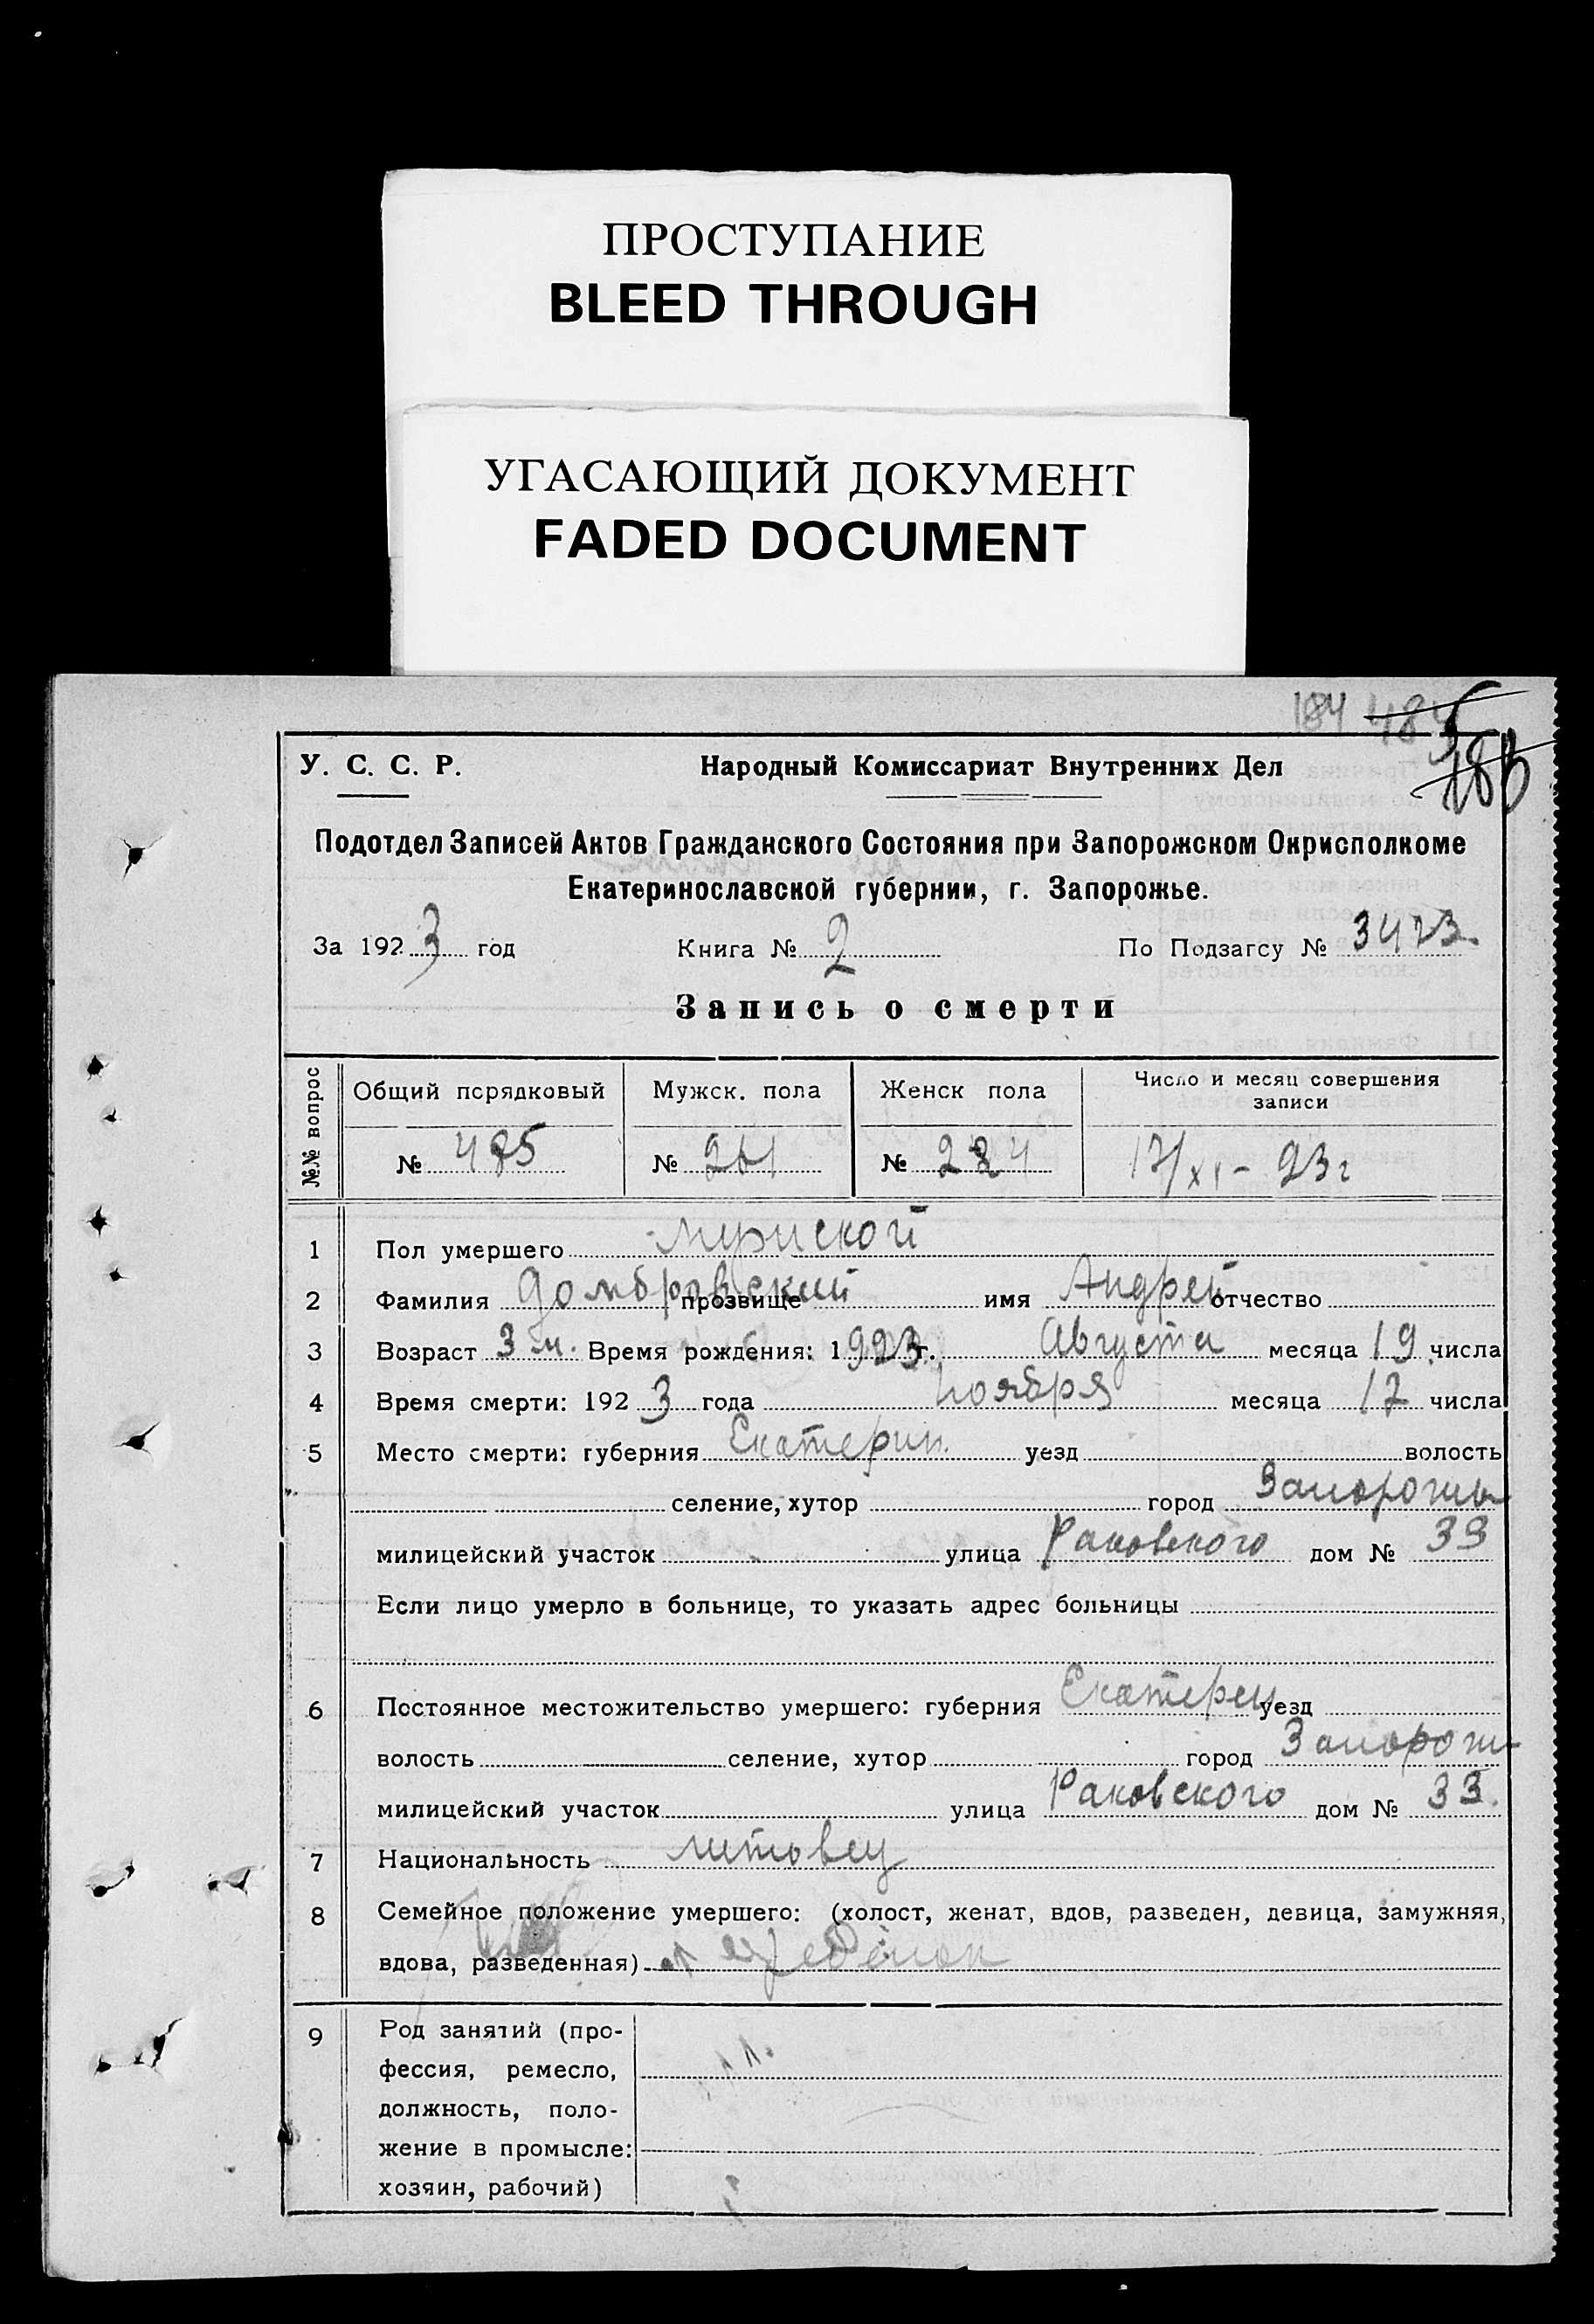 ПРОСТУПАНИЕ
BLEED THROUGH
УГАСАЮЩИЙ ДОКУМЕНТ
FADED DOCUMENT
184
У. С. С. Р. Народный Комиссариат Внутренних Дел
Подотдел Записей Актов Гражданского Состояния при Запорожском Окрисполкоме
Екатеринославской губернии, г. Запорожье.
За 1923 год Книга № 2 По Подзагсу № 3423.
Запись о смерти
№№ вопрос Общий порядковый Мужск. пола Женск пола Число и месяц совершения записи
№ 485 № 261 № 224 17/XI - 23 г
1 Пол умершего мужской
2 Фамилия Домбровский прозвище имя Андрей отчество
3 Возраст 3 м. Время рождения: 1923 г. Августа месяца 19 числа
4 Время смерти: 1923 года ноября месяца 17 числа
5 Место смерти: губерния Екатерин. уезд волость
селение, хутор город Запорожье
милицейский участок улица Раковского дом № 33
Если лицо умерло в больнице, то указать адрес больницы
6 Постоянное местожительство умершего: губерния Екатерин уезд
волость селение, хутор город Запорож
милицейский участок улица Раковского дом № 33.
7 Национальность литовец
8 Семейное положение умершего: (холост, женат, вдов, разведен, девица, замужняя,
вдова, разведенная) ребенок
9 Род занятий (про-
фессия, ремесло,
должность, поло-
жение в промысле:
хозяин, рабочий)